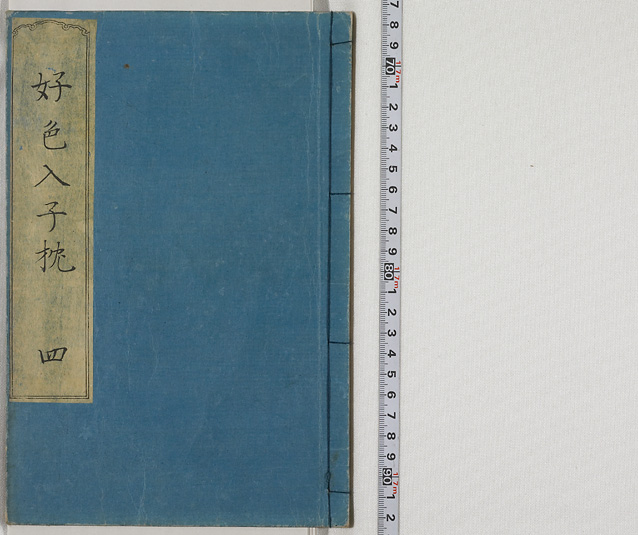 好色入子枕 四
7
8
9
70 17m
1
2
3
4
5
6
7
8
9
80 17m
1
2
3
4
5
6
7
8
9
90 17m
1
2